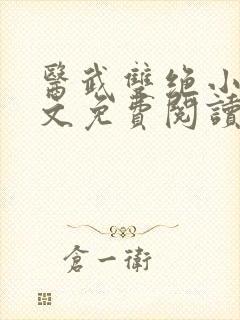 醫武雙絕小
文免費閱讀
倉一衛